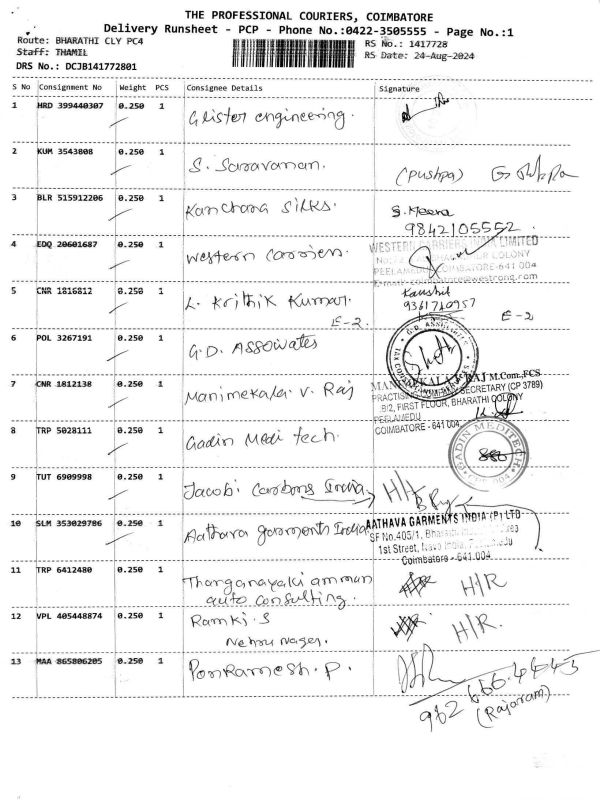 THE PROFESSIONAL COURIERS, COIMBATORE
Delivery Runsheet - PCP - Phone No.:0422-3505555 - Page No.:1
Route: BHARATHI CLY PC4
RS No.: 1417728
Staff: THAMIL
RS Date: 24-Aug-2024
DRS No.: DCJB141772801
S No Consignment No Weight PCS Consignee Details Signature
1 HRD 399440307 0.250 1 Glister engineering.
2 KUM 3543808 0.250 1 S. Saravanan. (pushpa)
3 BLR 515912206 0.250 1 Kanchana Silks. S. Meena
9842105552.
4 EDQ 20601687 0.250 1 Western carriers.
WESTERN CARRIERS INDIA LIMITED
COLONY
PEELAMEDU, COIMBATORE-641 004
5 CNR 1816812 0.250 1 L. Krithik Kumar. Kaushik
9361710957
E-2. E-2
6 POL 3267191 0.250 1 G.D. ASSOWATES
G.D. ASSOCIATES
7 CNR 1812138 0.250 1 Manimekalai. V. Raj
RAJ M.Com.,FCS
PRACTISING COMPANY SECRETARY (CP 3789)
B/2, FIRST FLOOR, BHARATHI COLONY
PEELAMEDU
COIMBATORE - 641 004
8 TRP 5028111 0.250 1 Gadin Medi tech.
GADIN MEDITECH
9 TUT 6909998 0.250 1 Jacobi Carbons India H/H
10 SLM 353029786 0.250 1 Aathava garments India
AATHAVA GARMENTS INDIA (P) LTD
SF No.405/1,
1st Street, Nava India,
Coimbatore - 641 004
11 TRP 6412480 0.250 1 Thanganayaki amman H/R
auto consulting.
12 VPL 405448874 0.250 1 Ramki. S H/R.
Nehru nager.
13 MAA 865806205 0.250 1 Ponramesh. P.
(Rajaram)